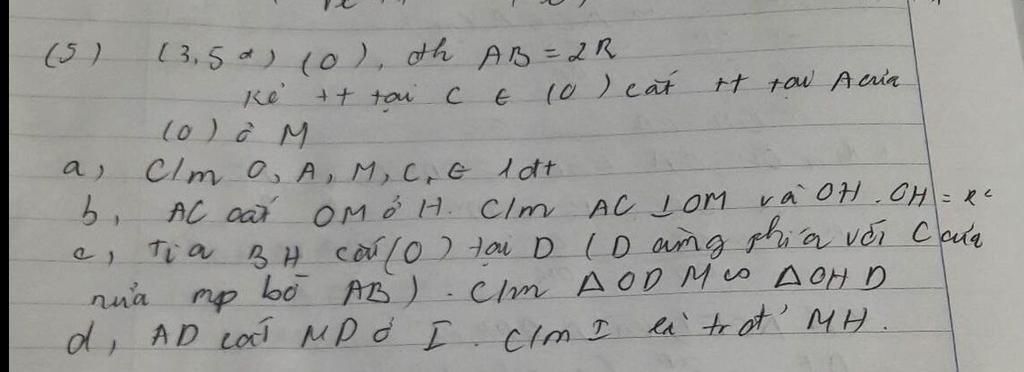 (5) (3,5 đ) (O), đk AB = 2R
Kẻ tt tại C ∈ (O) cắt tt tại A của
(O) ở M
a, C/m O, A, M, C, ∈ 1 đt
b, AC cắt OM ở H. C/m AC ⊥ OM và OH . OH = R²
c, Tia BH cắt (O) tại D (D cùng phía với C của
nửa mp bờ AB). C/m ΔODM ∽ ΔOHD
d, AD cắt MD ở I. C/m I là trđ MH.